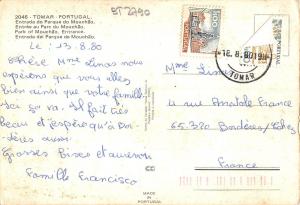 ET2790
2046 - TOMAR - PORTUGAL.
Entrada do Parque do Mouchão.
Entrée au Parc du Mouchão.
Park of Mouchão, Entrance.
Entrada del Parque do Mouchão.
Le : 13.8.80
Chère Mme nous
espérons que vous elles
bien ainsi que votre famille
ici ça va. Il fait très
beau et j'espère qu'à Bor-
dères aussi
Grosses Bises et au revoir
Famille Francisco
PORTUGAL
TOMAR
Mme
rue Anatole France
65.320 Bordères/Echez
France
MADE IN PORTUGAL